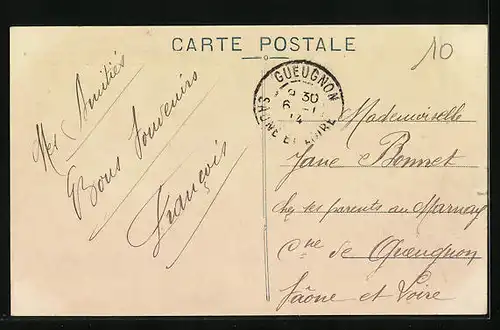 CARTE POSTALE
10
GUEUGNON
9 30
6 - 1
14
SAONE ET LOIRE
Mes Amitiés
Bons Souvenirs
François
Mademoiselle
Jane Bonnet
chez ses parents au Marnay
Cne de Gueugnon
Saône et Loire